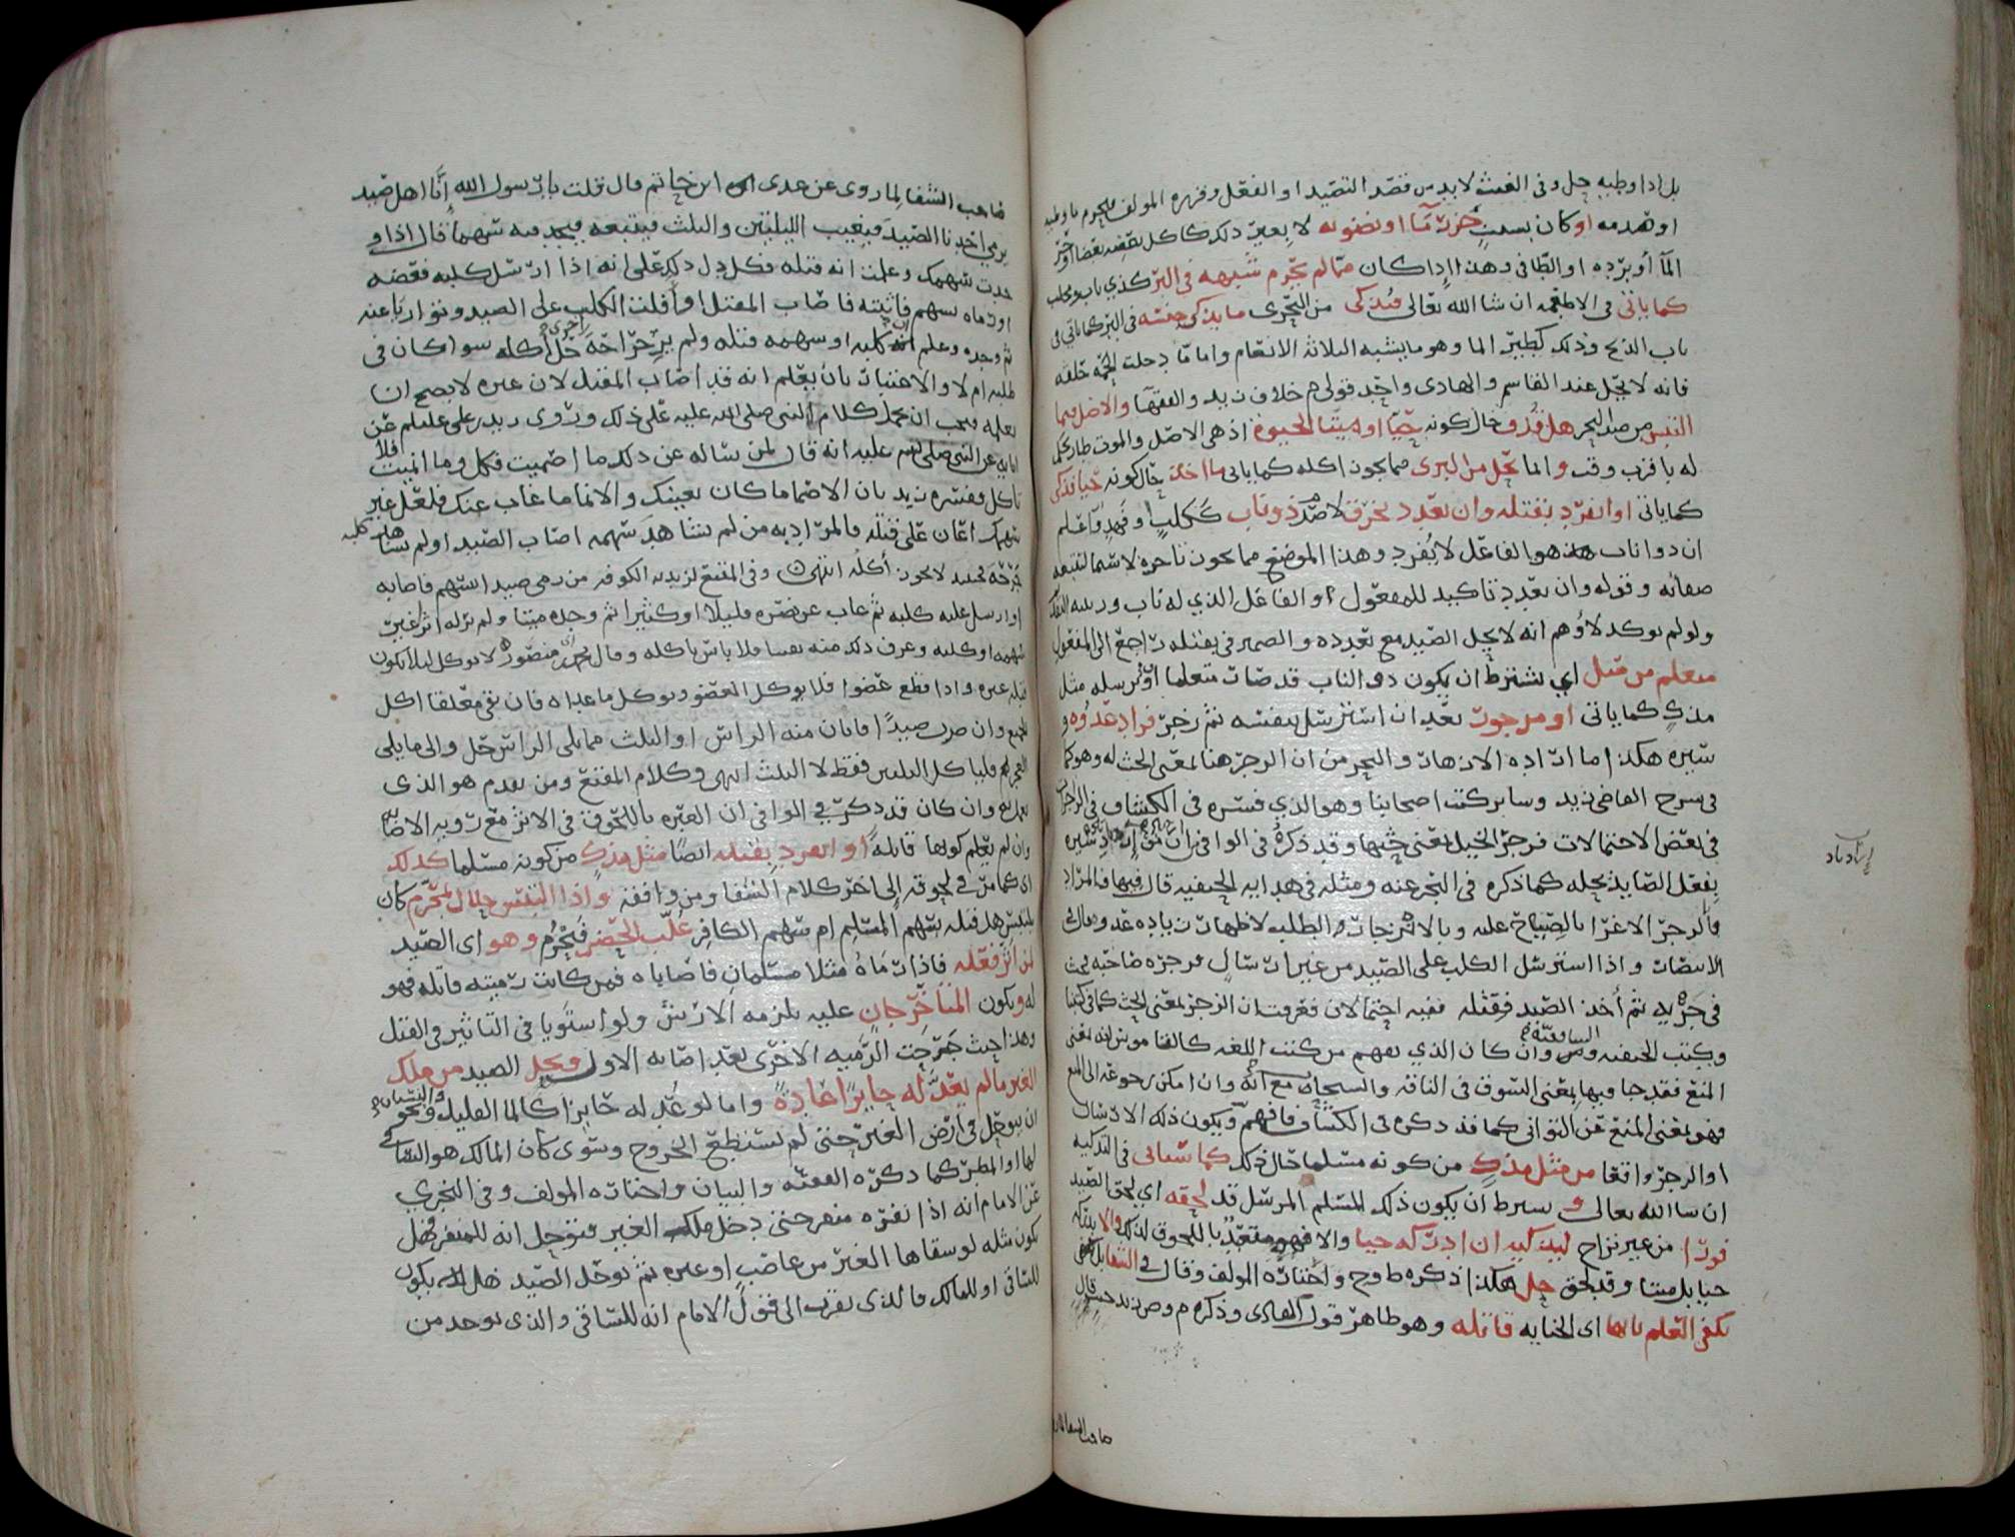 بل اذا وطيه حل وفى الغيث لا بد من قصد التصيد او الفعل وقرره المولف
او هدمه او كان بسبب حزر ما او نضوبه لا بعير ذلك كا كل بعضه بعضا او حر
الما او برده او الطافى وهذا اذا كان مما لم يحرم شبهه فى البر كذي ناب ومخلب
كما ياتى فى الاطعمه ان شا الله تعالى مذكى من البحرى ما يذكى جنسه فى البر كما ياتى فى
باب الذبح وذلك كطير الما وهو ما يشبه الثلاثة الانعام واما ما دخلت تحته خلقه
فانه لا يحل عند القاسم والهادى واحد قولى م خلاف زيد والفقها والاصل فيما
التبس من صيد البحر هل قذف حال كونه حيا او ميتا الحيوة اذ هى الاصل والموت طار
له باقرب وقت وانما يحل من البرى مما يجوز اكله كما ياتى ما اخذ حال كونه حيا فذكى
كما ياتى او انفرد بقتله وان تعدد بخرق لا صدم ذو ناب ككلب او فهد واعلم
ان ذو اناب هو الفاعل لا نفرد وهذا الموضع مما يجوز تاخره لا سيما لتتبعه
صفاته وقوله وان تعدد تاكيد للمفعول او الفاعل الذي له ناب
ولو لم يوكد لاوهم انه لا يحل الصيد مع تعدده والضمير فى بقتله راجع الى المفعول
معلم من قبل اي يشترط ان يكون ذو الناب قد صار متعلما ارسله مثل
مذك كما ياتى او مزجور بعد ان استرسل بنفسه ثم زجر فزاد عدوه و
سيره هكذا ما اراده الازهار والبحر من ان الزجر هنا بمعنى الحث له وهو كما
فى شرح القاضى زيد وساير كتب اصحابنا وهو الذي فسره فى الكشاف فى الزاجرات
فى بعض الاحتمالات فزجر الخيل بمعنى حثها وقد ذكره فى الوافى
بفعل الصايد بحله كما ذكره فى البحر عنه ومثله فى هدايه الحنفيه قال فيها فالمراد
بالزجر الاغرا بالصياح عليه وبالانزجار الطلبه لاظهار زياده عدوه وقال فى
الانتصار واذا استرسل الكلب على الصيد من غير ارسال فزجره صاحبه بحث
فى جريه ثم أخذ الصيد فقتله ففيه احتمالان فعرفت ان الزجر بمعنى الحث كما فى كتبنا
وكتب الحنفيه والشافعيه وان كان الذي يفهم من كتب اللغه كالقاموس انه بمعنى
المنع فقد جا فيها بمعنى السوق فى الناقه والسحاب مع انه وان امكن رجوعه الى المنع
فهو بمعنى المنع عن التوانى كما قد ذكره فى الكشاف فافهم ويكون ذلك الارسال
او الزجر واقعا من مثل مذك من كونه مسلما حال ذلك كما سياتى فى التذكيه
ان شا الله تعالى و يشترط ان يكون ذلك المسلم المرسل قد لحقه اي لحق الصيد
فورا من غير تراخ ليذكيه ان ادركه حيا والا فهو متعبد باللحوق لذلك والا يدركه
حيا بل ميتا وقد لحق حل هكذا ذكره ط وح واختاره المولف وقال فى الشفا بل
يكفى العلم بانها اى الجنايه قاتله وهو ظاهر قول الهادى وذكره م وص زيد قال
صاحب الشفا لما
ارشاد
صاحب الشفا لما روى عن عدى ابن حاتم قال قلت يا رسول الله إنا اهل صيد
يرمي احدنا الصيد فيغيب الليلتين والثلث فيتبعه فيجد فيه سهما قال اذا و
جدت سهمك وعلمت انه قتله فكل دل ذلك على انه اذا ارسل كلبه فعضه
او رماه بسهم فاثبته فاصاب المقتل او افلت الكلب على الصيد وتواريا عنه
ثم وجده وعلم ان كلبه او سهمه قتله ولم ير جراحة اخرى حل أكله سوا كان فى
طلبه ام لا والاعتبار بان يعلم انه قد اصاب المقتل لان غيره لا يصح ان
يعلمه فيجب ان يحمل كلام النبي صلى الله عليه على ذلك وروى زيد بن على عليلم عن
ابايه عن النبى صلى الله عليه انه قال لمن ساله عن ذلك ما اصميت فكل وما انميت فلا
تاكل وفسره زيد بان الاصما ما كان بعينك والانما ما غاب عنك فلعل غير
سهمك اعان على قتله فالمراد به من لم يشاهد سهمه اصاب الصيد او لم يشاهد كلبه
جرحه فحينئذ لا يجوز أكله انتهى وفى المقنع لزيديه الكوفه من رمى صيدا بسهم فاصابه
او ارسل عليه كلبه ثم غاب عن بصره قليلا او كثيرا ثم وجده ميتا ولم ير له اثر غير
سهمه او كلبه وعرف ذلك منه يقينا فلا باس باكله وقال محمد بن منصور لا يوكل ليلا يكون
قتله غيره واذا قطع عضوا فلا يوكل العضو ويوكل ما عداه فان بقى معلقا اكل
الجميع وان ضرب صيدا فابان منه الراس او الثلث مما يلى الراس حل والى ما يلى
العجز فلياكل الثلثين فقط لا الثلث انتهى وكلام المقنع ومن تقدم هو الذى
وان كان قد ذكر فى الوافى ان العبره باللحوق فى الاثر مع رويه الاصابه
وان لم يعلم كونها قاتله او انفرد بقتله ايضا مثل مذك من كونه مسلما كذلك
اى كما مر فى لحوقه إلى اخر كلام الشفا ومن وافقه واذا التبس حلال بمحرم كان
يلتبس هل قتله سهم المسلم ام سهم الكافر غلب الحضر فيحرم وهو اى الصيد
لمن أثر فعله فاذا رماه مثلا مسلمان فاصاباه فمن كانت رميته قاتله فهو
له ويكون المتاخر جان عليه يلزمه الارش ولو استويا فى التاثير فى القتل
وهذا حيث جرحت الرميه الاخرى بعد اصابه الاول ويحل الصيد من ملك
الغير ما لم يعد له حايزا عادة واما لو عد له حايزا كالما القليل ونحو البستان
ان يتوحل فى ارض الغير حتى لم يستطع الخروج وسوى كان المالك هو الساقى
لها او المطر كما ذكره الفقيه والبيان واختاره المولف وفى البحري
عن الامام انه اذا نفره منفر حتى دخل ملك الغير فتوحل انه للمنفر فهل
يكون مثله لو سقاها الغير من غاصب او غيره ثم توحل الصيد هل يكون
للساقى او للمالك فالذى يقرب الى قول الامام انه للساقى والذى يوخذ من